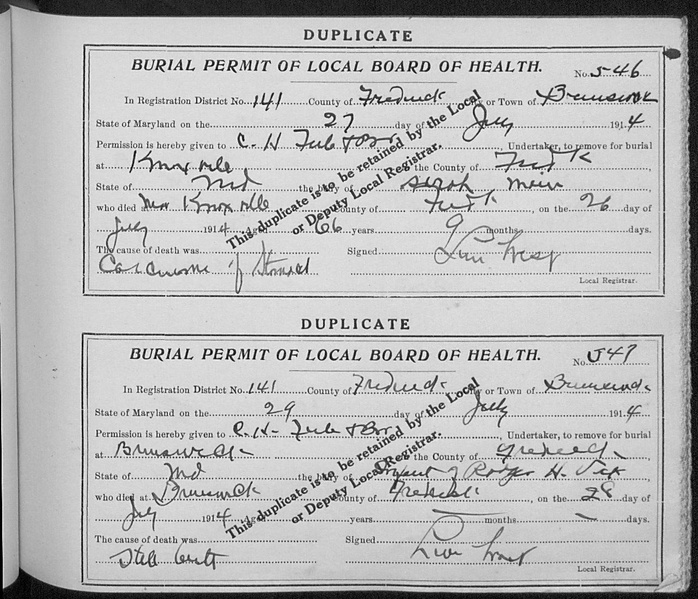 DUPLICATE
BURIAL PERMIT OF LOCAL BOARD OF HEALTH.
No. 546
In Registration District No. 141 County of Frederick City or Town of Brunswick
State of Maryland on the 27 day of July 1914
Permission is hereby given to C. H. Undertaker, to remove for burial
at Knoxville in the County of Fredk
State of Md the body of Sarah
who died Knoxville County of Fredk, on the 26 day of
July 1914 aged 66 years 9 months days.
The cause of death was Signed
Carcinoma of Stomach
Local Registrar.
This duplicate is to be retained by the Local
or Deputy Local Registrar.
DUPLICATE
BURIAL PERMIT OF LOCAL BOARD OF HEALTH.
No. 547
In Registration District No. 141 County of Frederick City or Town of Brunswick
State of Maryland on the 29 day of July 1914
Permission is hereby given to C. H. Undertaker, to remove for burial
at Brunswick in the County of Frederick
State of Md the body of Infant of Roger H.
who died at Brunswick County of Frederick, on the 28 day of
July 1914 aged years months days.
The cause of death was Signed
Still
Local Registrar.
This duplicate is to be retained by the Local
or Deputy Local Registrar.